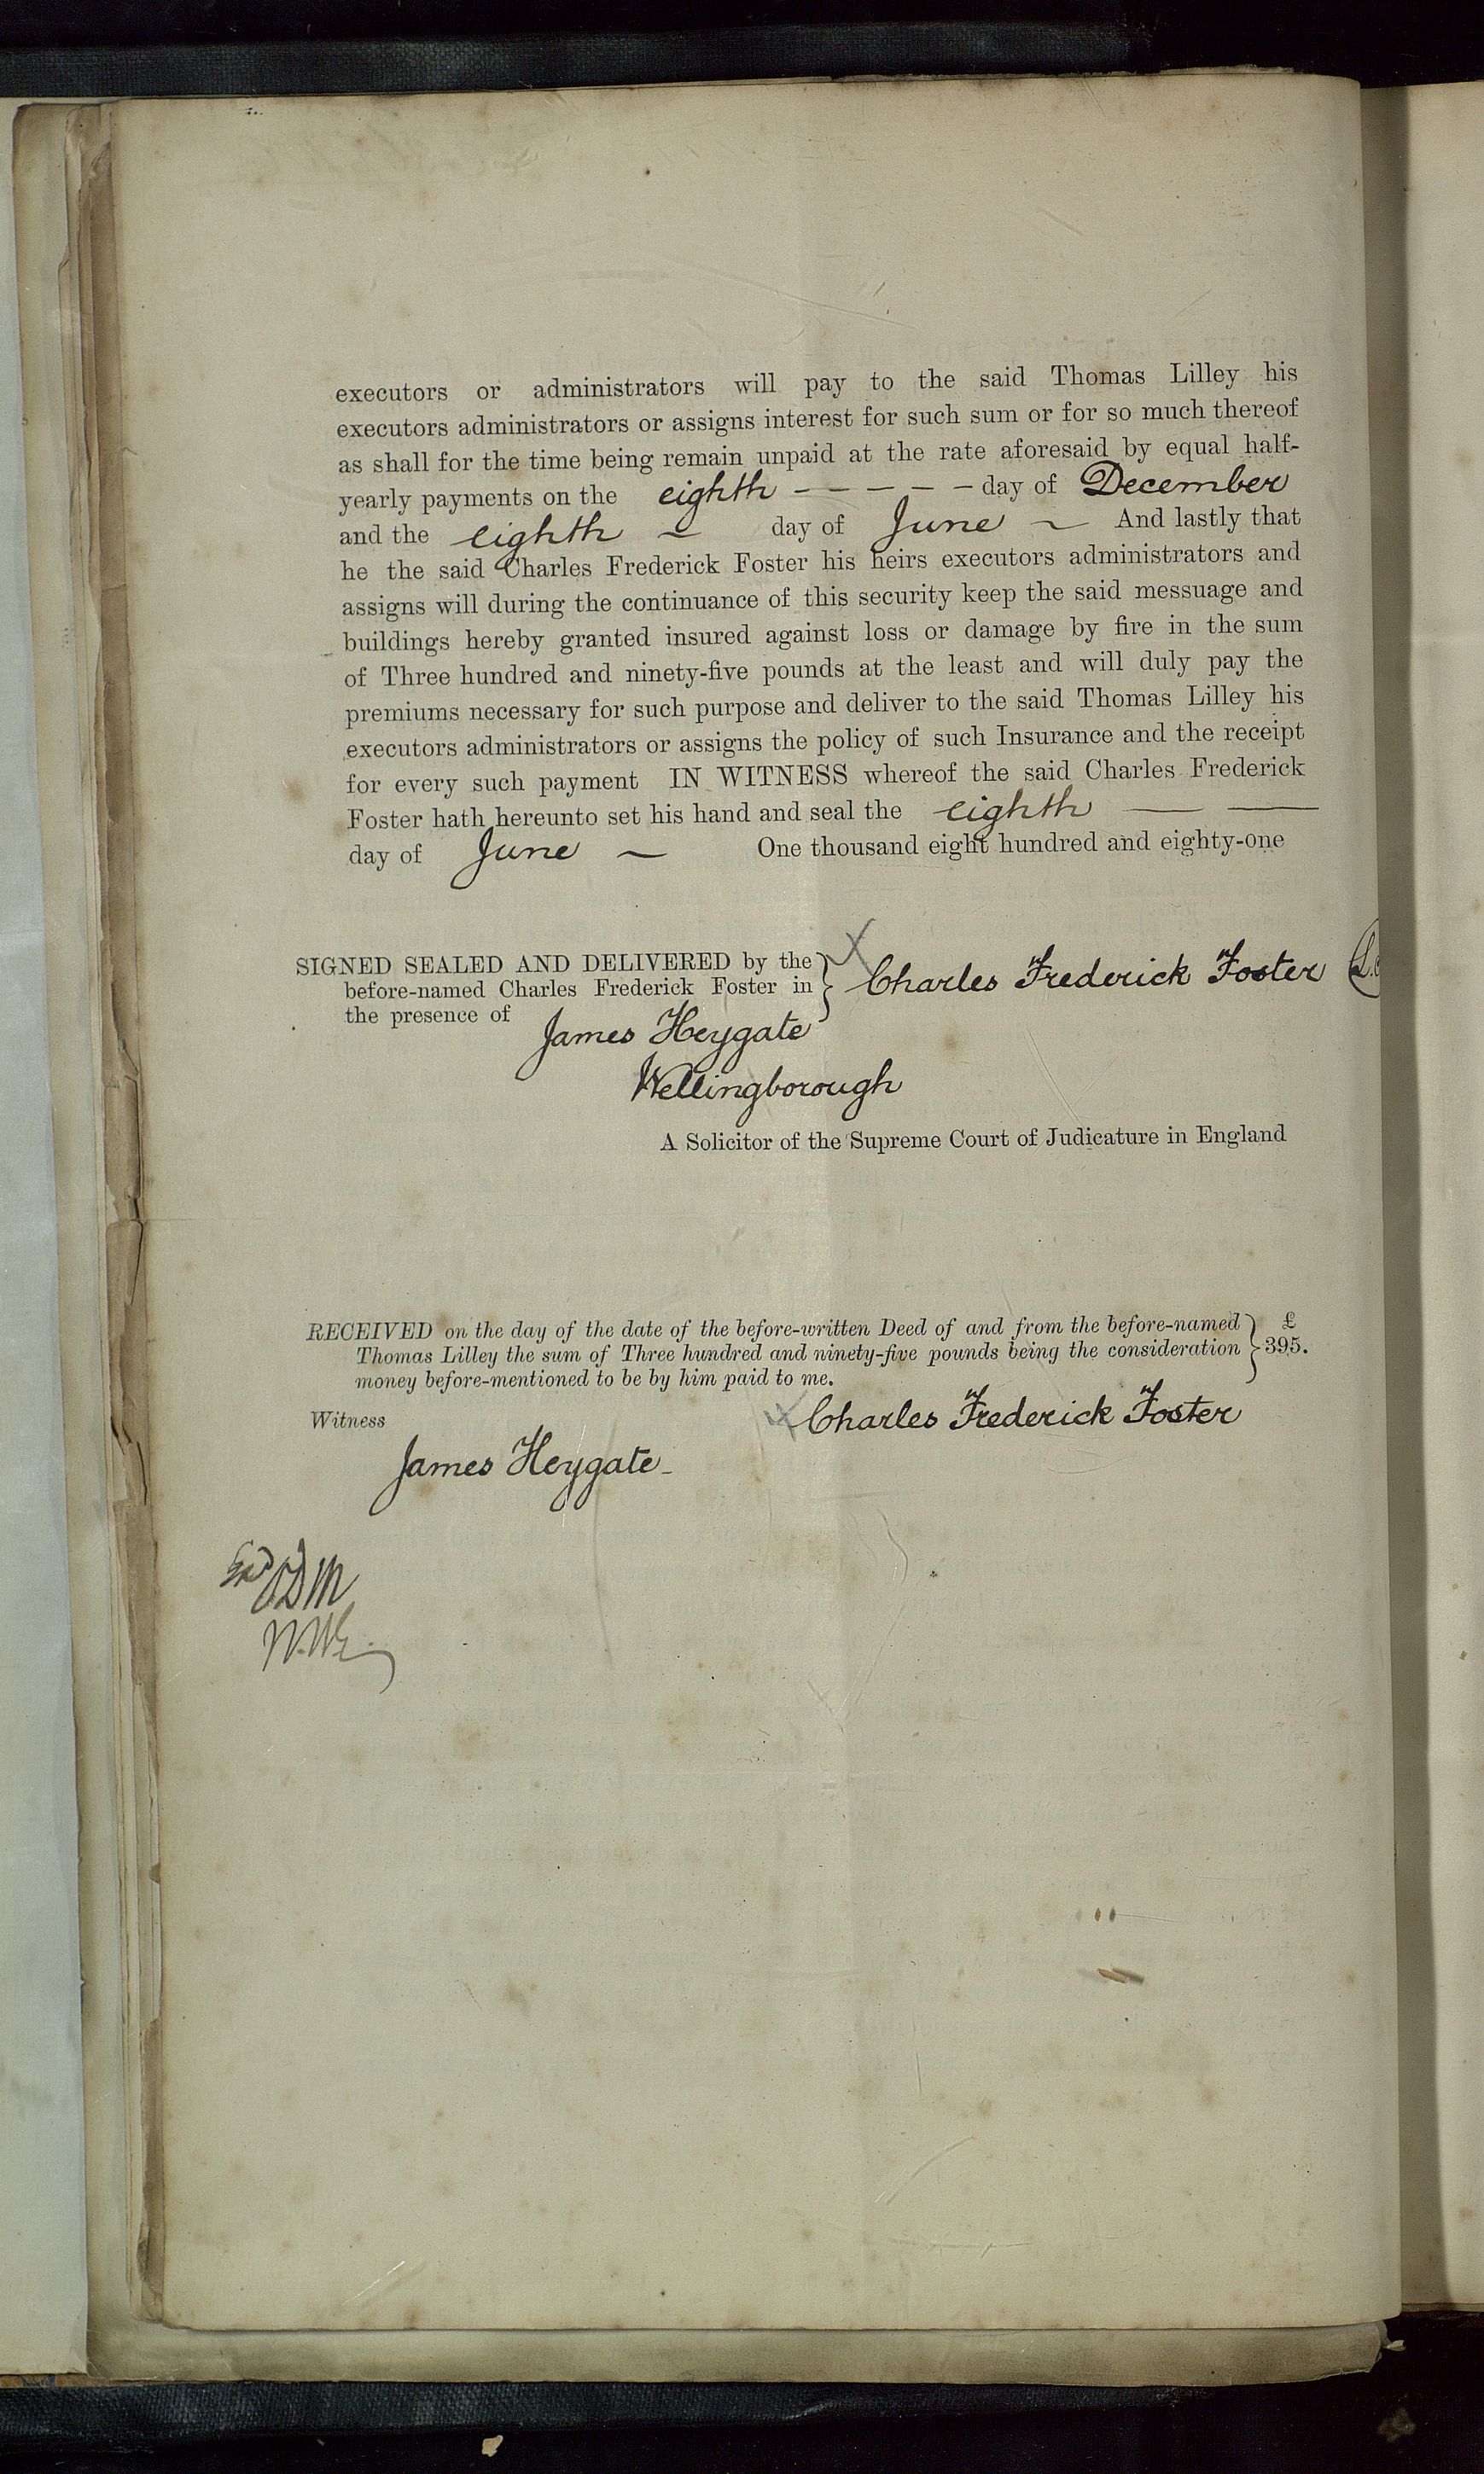 executors or administrators will pay to the said Thomas Lilley his
executors administrators or assigns interest for such sum or for so much thereof
as shall for the time being remain unpaid at the rate aforesaid by equal half-
yearly payments on the eighth - - - - - day of December
and the eighth ~ day of June ~ And lastly that
he the said Charles Frederick Foster his heirs executors administrators and
assigns will during the continuance of this security keep the said messuage and
buildings hereby granted insured against loss or damage by fire in the sum
of Three hundred and ninety-five pounds at the least and will duly pay the
premiums necessary for such purpose and deliver to the said Thomas Lilley his
executors administrators or assigns the policy of such Insurance and the receipt
for every such payment IN WITNESS whereof the said Charles Frederick
Foster hath hereunto set his hand and seal the eighth — —
day of June ~ One thousand eight hundred and eighty-one
SIGNED SEALED AND DELIVERED by the
before-named Charles Frederick Foster in
the presence of
Charles Frederick Foster
James Heygate
Wellingborough
A Solicitor of the Supreme Court of Judicature in England
RECEIVED on the day of the date of the before-written Deed of and from the before-named
Thomas Lilley the sum of Three hundred and ninety-five pounds being the consideration
money before-mentioned to be by him paid to me.
£
395.
Witness
Charles Frederick Foster
James Heygate